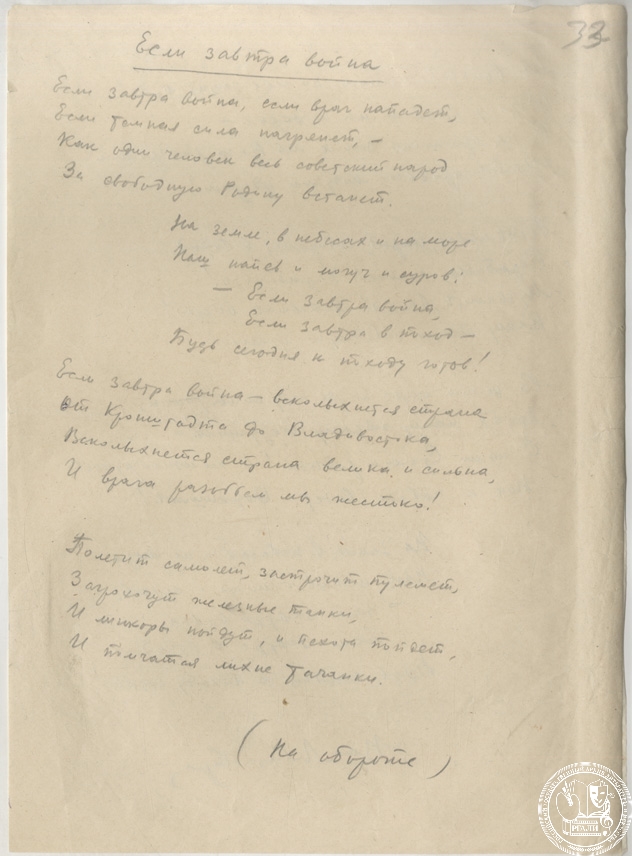 33
Если завтра война
Если завтра война, если враг нападет,
Если темная сила нагрянет, –
Как один человек весь советский народ
За свободную Родину встанет.
На земле, в небесах и на море
Наш напев и могуч и суров:
– Если завтра война,
Если завтра в поход –
Будь сегодня к походу готов!
Если завтра война – всколыхнется страна
От Кронштадта до Владивостока,
Всколыхнется страна велика и сильна,
И врага разобьем мы жестоко!
Полетит самолет, застрочит пулемет,
Загрохочут железные танки,
И линкоры пойдут, и пехота пойдет,
И помчатся лихие тачанки.
(На обороте)
РГАЛИ